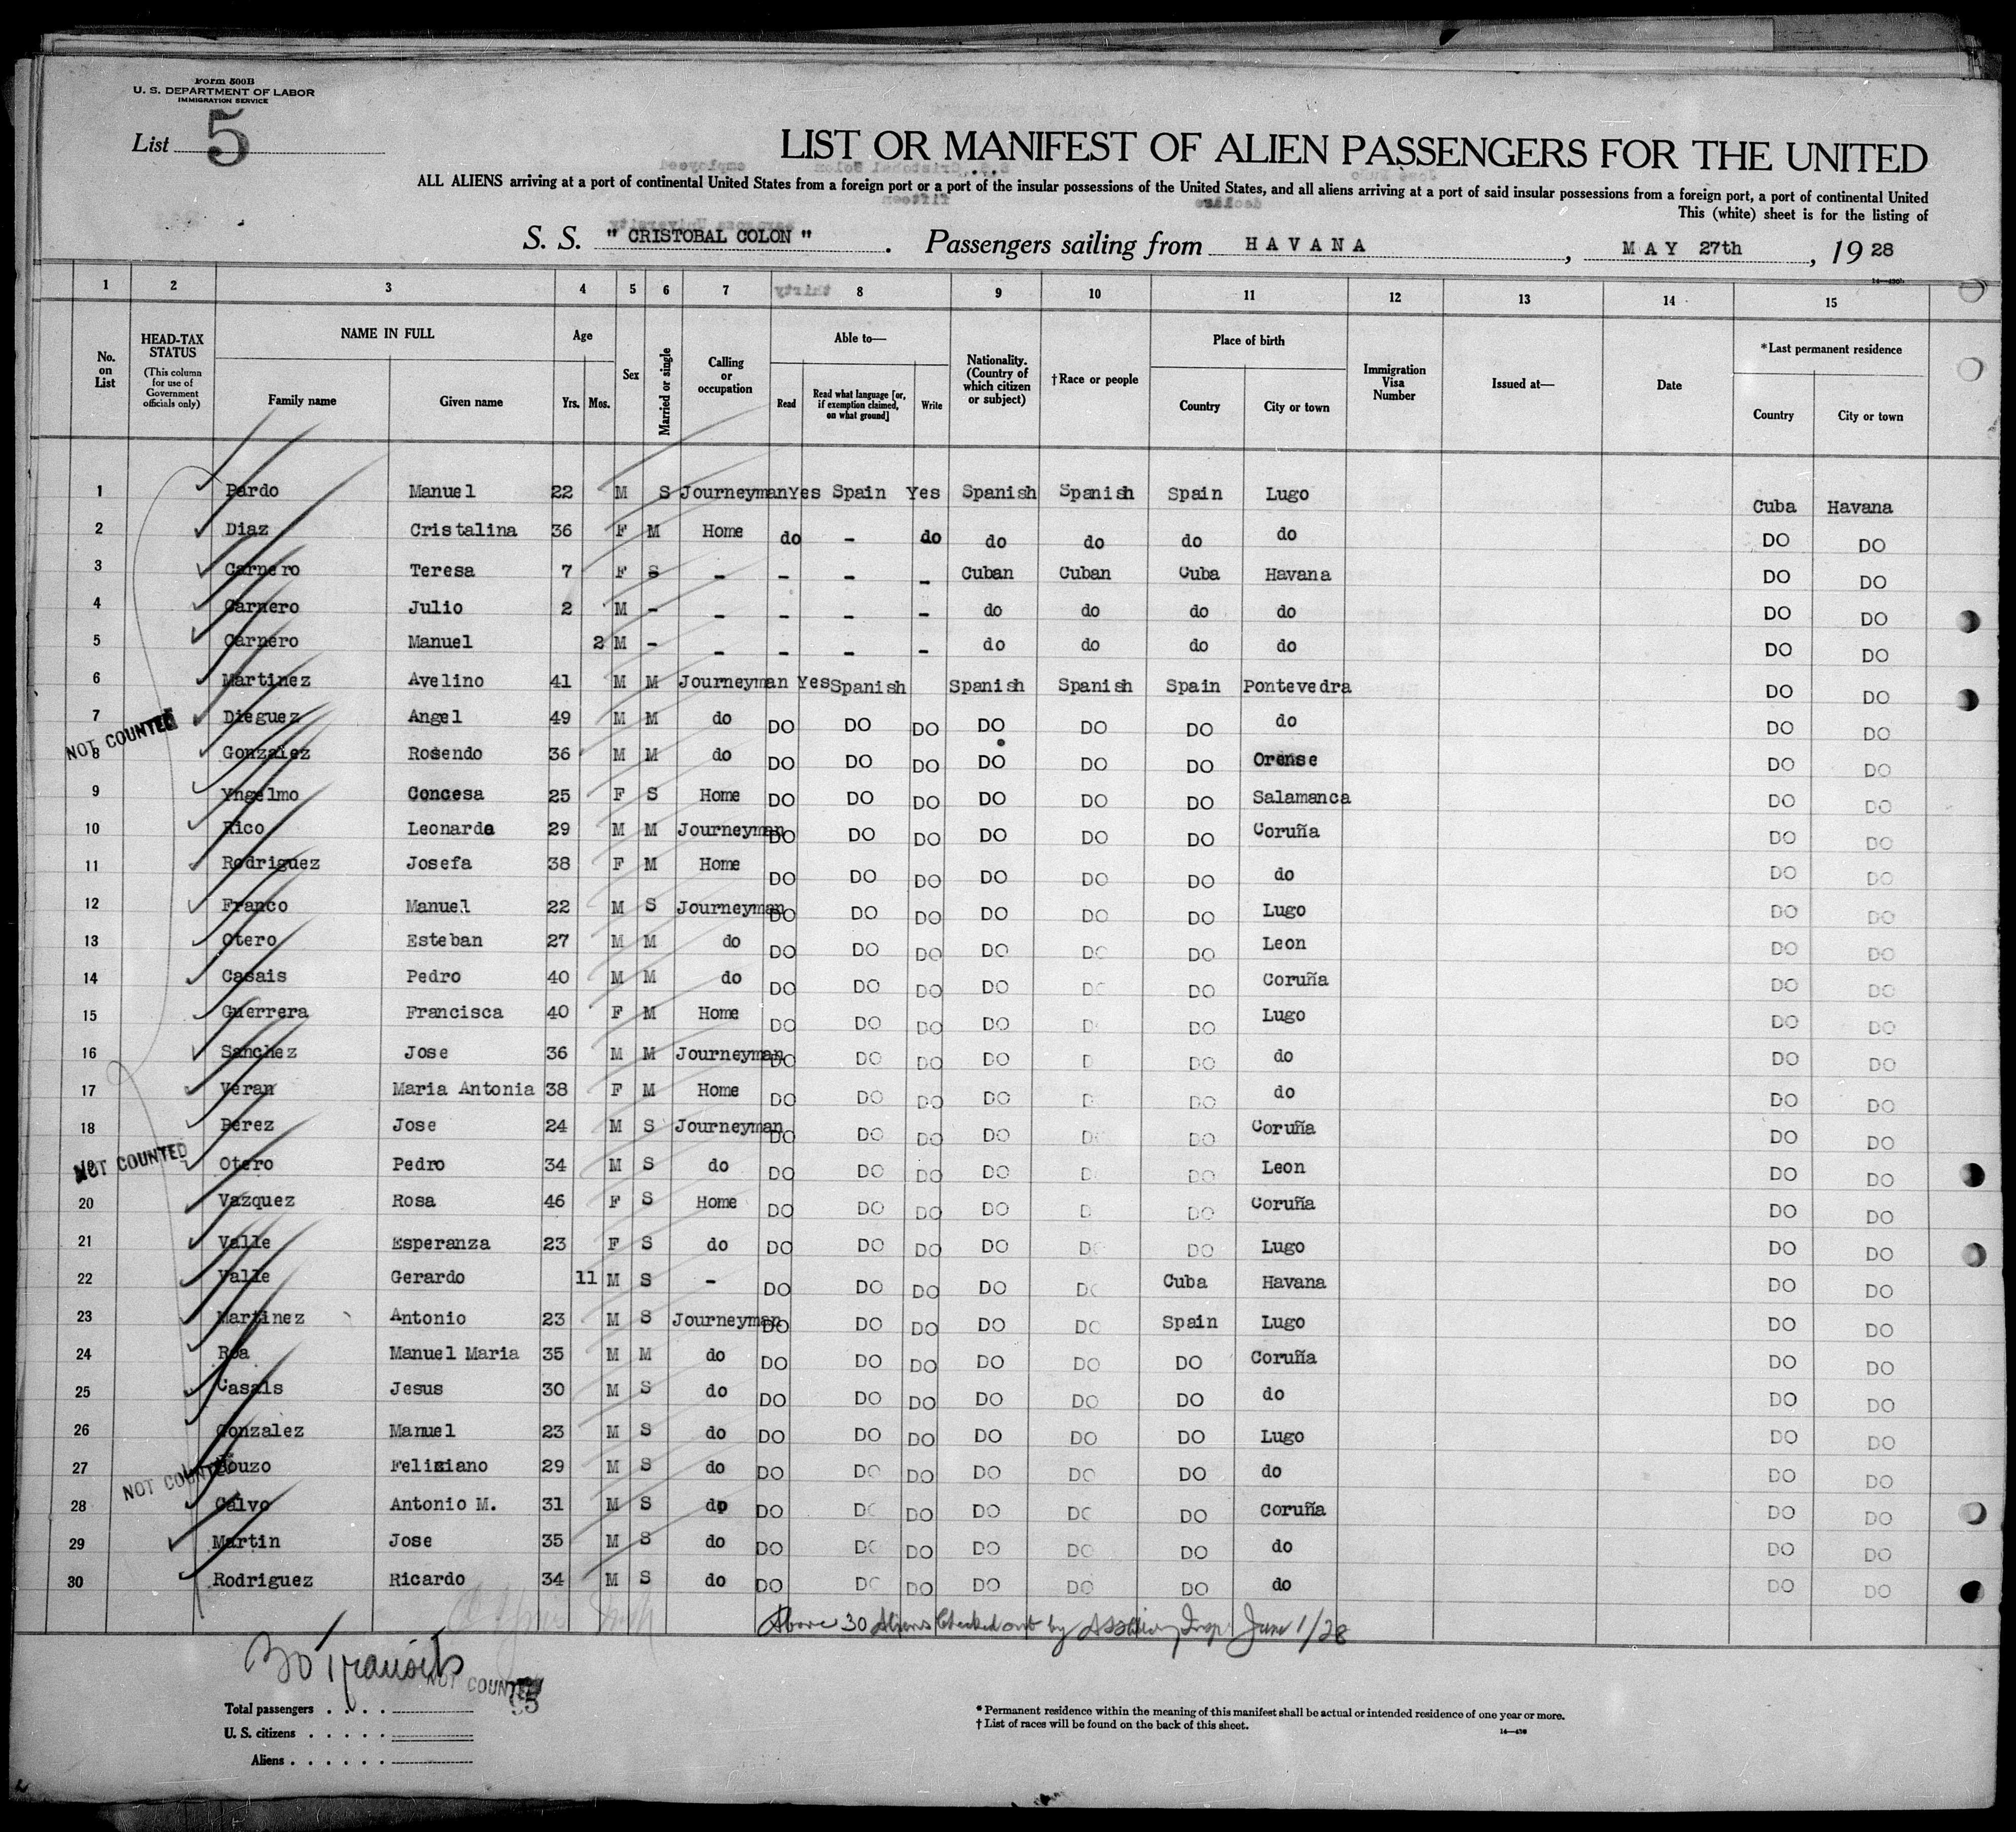 Form 500B
U. S. DEPARTMENT OF LABOR
IMMIGRATION SERVICE
List 5
LIST OR MANIFEST OF ALIEN PASSENGERS FOR THE UNITED
ALL ALIENS arriving at a port of continental United States from a foreign port or a port of the insular possessions of the United States, and all aliens arriving at a port of said insular possessions from a foreign port, a port of continental United
This (white) sheet is for the listing of
S. S. " CRISTOBAL COLON " . Passengers sailing from HAVANA , MAY 27th , 19 28
1 2 3 4 5 6 7 8 9 10 11 12 13 14 15
No. on List
HEAD-TAX STATUS (This column for use of Government officials only)
NAME IN FULL Family name Given name
Age Yrs. Mos.
Sex
Married or single
Calling or occupation
Able to— Read Read what language [or, if exemption claimed, on what ground] Write
Nationality. (Country of which citizen or subject)
†Race or people
Place of birth Country City or town
Immigration Visa Number
Issued at—
Date
*Last permanent residence Country City or town
1 Pardo Manuel 22 M S Journeyman Yes Spain Yes Spanish Spanish Spain Lugo Cuba Havana
2 Diaz Cristalina 36 F M Home do - do do do do do DO DO
3 Carnero Teresa 7 F S - - - - Cuban Cuban Cuba Havana DO DO
4 Carnero Julio 2 M - - - - - do do do do DO DO
5 Carnero Manuel 2 M - - - - - do do do do DO DO
6 Martinez Avelino 41 M M Journeyman Yes Spanish Spanish Spanish Spain Pontevedra DO DO
7 Dieguez Angel 49 M M do DO DO DO DO DO DO do DO DO
NOT COUNTED
8 Gonzalez Rosendo 36 M M do DO DO DO DO DO DO Orense DO DO
9 Yngelmo Concesa 25 F S Home DO DO DO DO DO DO Salamanca DO DO
10 Rico Leonardo 29 M M Journeyman DO DO DO DO DO DO Coruña DO DO
11 Rodriguez Josefa 38 F M Home DO DO DO DO DO DO do DO DO
12 Franco Manuel 22 M S Journeyman DO DO DO DO DO DO Lugo DO DO
13 Otero Esteban 27 M M do DO DO DO DO DO DO Leon DO DO
14 Casais Pedro 40 M M do DO DO DO DO DO DO Coruña DO DO
15 Guerrera Francisca 40 F M Home DO DO DO DO D DO Lugo DO DO
16 Sanchez Jose 36 M M Journeyman DO DO DO DO D DO do DO DO
17 Veran Maria Antonia 38 F M Home DO DO DO DO D DO do DO DO
18 Perez Jose 24 M S Journeyman DO DO DO DO DO DO Coruña DO DO
NOT COUNTED
19 Otero Pedro 34 M S do DO DO DO DO D DO Leon DO DO
20 Vazquez Rosa 46 F S Home DO DO DO DO D DO Coruña DO DO
21 Valle Esperanza 23 F S do DO DO DO DO DO DO Lugo DO DO
22 Valle Gerardo 11 M S - DO DO DO DO DO Cuba Havana DO DO
23 Martinez Antonio 23 M S Journeyman DO DO DO DO DO Spain Lugo DO DO
24 Roa Manuel Maria 35 M M do DO DO DO DO DO DO Coruña DO DO
25 Casals Jesus 30 M S do DO DO DO DO DO DO do DO DO
26 Gonzalez Manuel 23 M S do DO DO DO DO DO DO Lugo DO DO
27 Bouzo Feliziano 29 M S do DO DO DO DO DO DO do DO DO
NOT COUNTED
28 Calvo Antonio M. 31 M S do DO DO DO DO DO DO Coruña DO DO
29 Martin Jose 35 M S do DO DO DO DO DO DO do DO DO
30 Rodriguez Ricardo 34 M S do DO DO DO DO DO DO do DO DO
Above 30 Aliens Checked out by Insp. June 1/28
30 Transits
NOT COUNTED
Total passengers
U. S. citizens
Aliens
* Permanent residence within the meaning of this manifest shall be actual or intended residence of one year or more.
† List of races will be found on the back of this sheet.
14—430